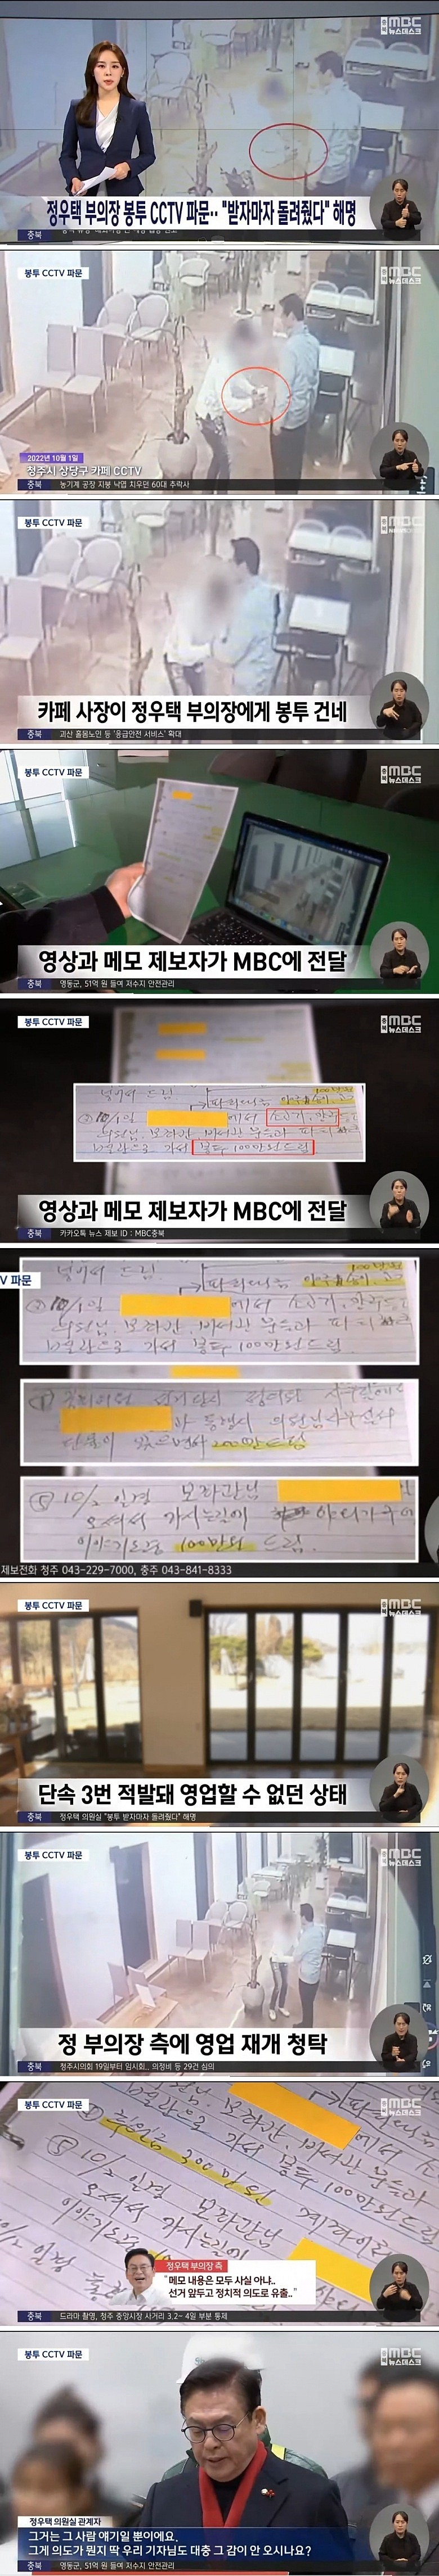 MBC
뉴스데스크
정우택 부의장 봉투 CCTV 파문‥ "받자마자 돌려줬다" 해명
충북
봉투 CCTV 파문
MBC
뉴스데스크
2022년 10월 1일
청주시 상당구 카페 CCTV
충북 농기계 공장 지붕 낙엽 치우던 60대 추락사
봉투 CCTV 파문
MBC
카페 사장이 정우택 부의장에게 봉투 건네
충북 괴산 홀몸노인 등 '응급안전 서비스' 확대
봉투 CCTV 파문
MBC
뉴스데스크
영상과 메모 제보자가 MBC에 전달
충북 영동군, 51억 원 들여 저수지 안전관리
봉투 CCTV 파문
MBC
뉴스데스크
100만원
봉투 100만원 드림
영상과 메모 제보자가 MBC에 전달
충북 카카오톡 뉴스 제보 ID : MBC충북
V 파문
100만원
봉투 100만원 드림
200만 드림
⑧ 10/2 일경 보좌관님
오셔서 가시는길에
100만원 드림.
제보전화 청주 043-229-7000, 충주 043-841-8333
봉투 CCTV 파문
MBC
뉴스데스크
단속 3번 적발돼 영업할 수 없던 상태
충북 정우택 의원실 "봉투 받자마자 돌려줬다" 해명
봉투 CCTV 파문
MBC
뉴스데스크
정 부의장 측에 영업 재개 청탁
충북 청주시의회 19일부터 임시회.. 의정비 등 29건 심의
봉투 CCTV 파문
MBC
뉴스데스크
봉투 100만원 드림
300만원
⑧ 10/2 일경 보좌관님
오셔서 가시는길에
정우택 부의장 측
"메모 내용은 모두 사실 아냐..
선거 앞두고 정치적 의도로 유출.."
충북 드라마 촬영, 청주 중앙시장 사거리 3.2~4일 부분 통제
봉투 CCTV 파문
MBC
뉴스데스크
정우택 의원실 관계자
그거는 그 사람 얘기일 뿐이에요.
그게 의도가 뭔지 딱 우리 기자님도 대충 그 감이 안 오시나요?
충북 영동군, 51억 원 들여 저수지 안전관리